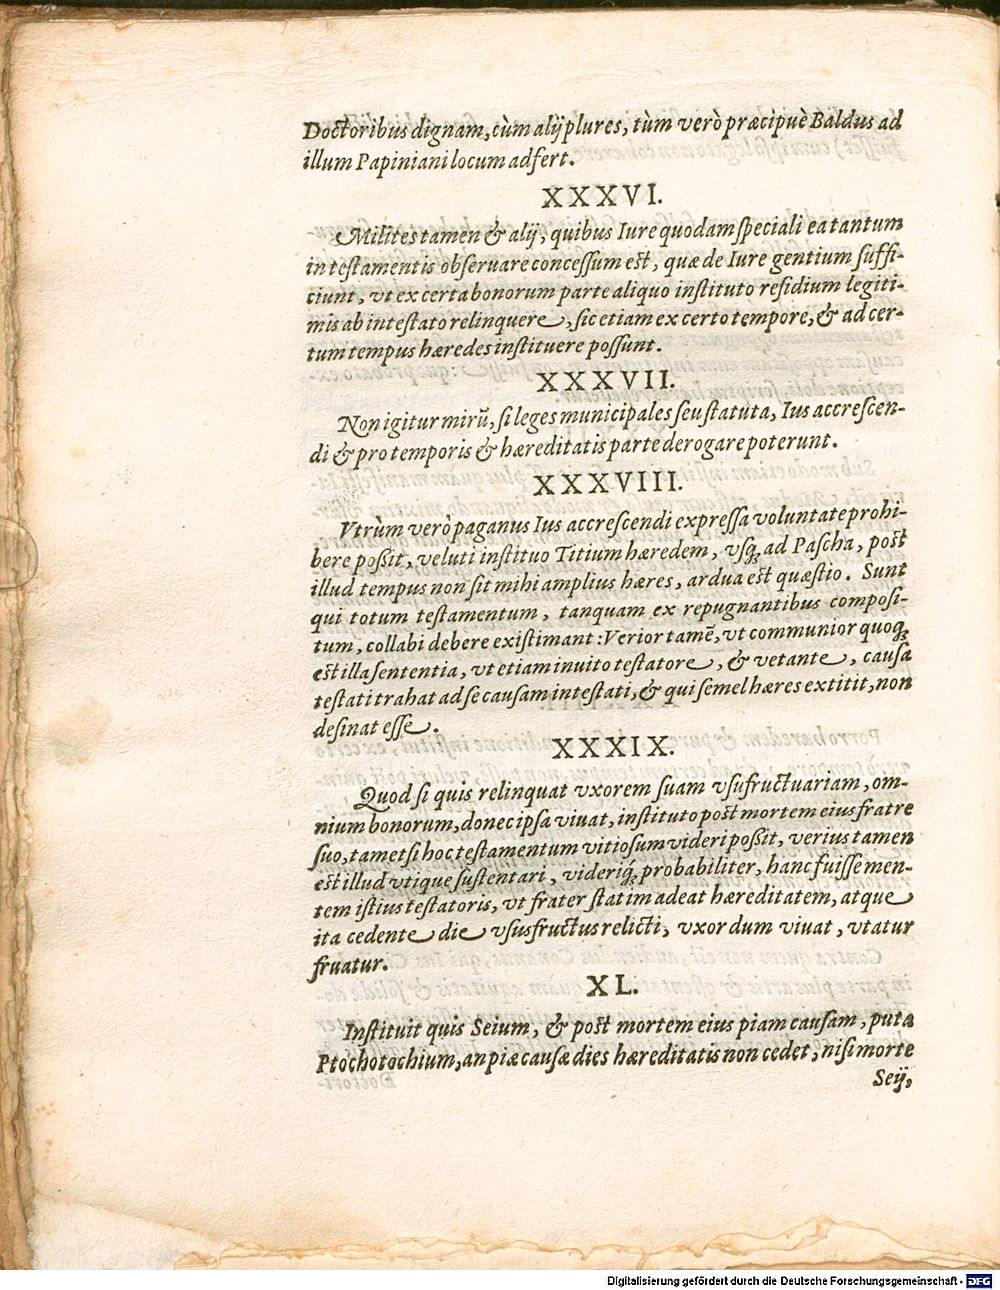 Doctoribus dignam, cùm alij plures, tùm verò præcipuè Baldus ad
illum Papiniani locum adfert.
XXXVI.
Milites tamen & alij, quibus Iure quodam speciali ea tantum
in testamentis obseruare concessum est, quæ de Iure gentium suffi-
ciunt, vt ex certa bonorum parte aliquo instituto residium legiti-
mis ab intestato relinquere, sic etiam ex certo tempore, & ad cer-
tum tempus hæredes instituere possunt.
XXXVII.
Non igitur mirũ, si leges municipales seu statuta, Ius accrescen-
di & pro temporis & hæreditatis parte derogare poterunt.
XXXVIII.
Vtrum verò paganus Ius accrescendi expressa voluntate prohi-
bere poßit, veluti instituo Titium hæredem, vsq; ad Pascha, post
illud tempus non sit mihi amplius hæres, ardua est quæstio. Sunt
qui totum testamentum, tanquam ex repugnantibus composi-
tum, collabi debere existimant: Verior tamẽ, vt communior quoq;
est illa sententia, vt etiam inuito testatore, & vetante, causa
testati trahat ad se causam intestati, & qui semel hæres extitit, non
desinat esse.
XXXIX.
Quod si quis relinquat vxorem suam vsufructuariam, om-
nium bonorum, donec ipsa viuat, instituto post mortem eius fratre
suo, tametsi hoc testamentum vitiosum videri poßit, verius tamen
est illud vtique sustentari, videriq́; probabiliter, hanc fuisse men-
tem istius testatoris, vt frater statim adeat hæreditatem, atque
ita cedente die vsusfructus relicti, vxor dum viuat, vtatur
fruatur.
XL.
Instituit quis Seium, & post mortem eius piam causam, puta
Ptochotochium, an piæ causæ dies hæreditatis non cedet, nisi morte
Seij,
Digitalisierung gefördert durch die Deutsche Forschungsgemeinschaft - DFG